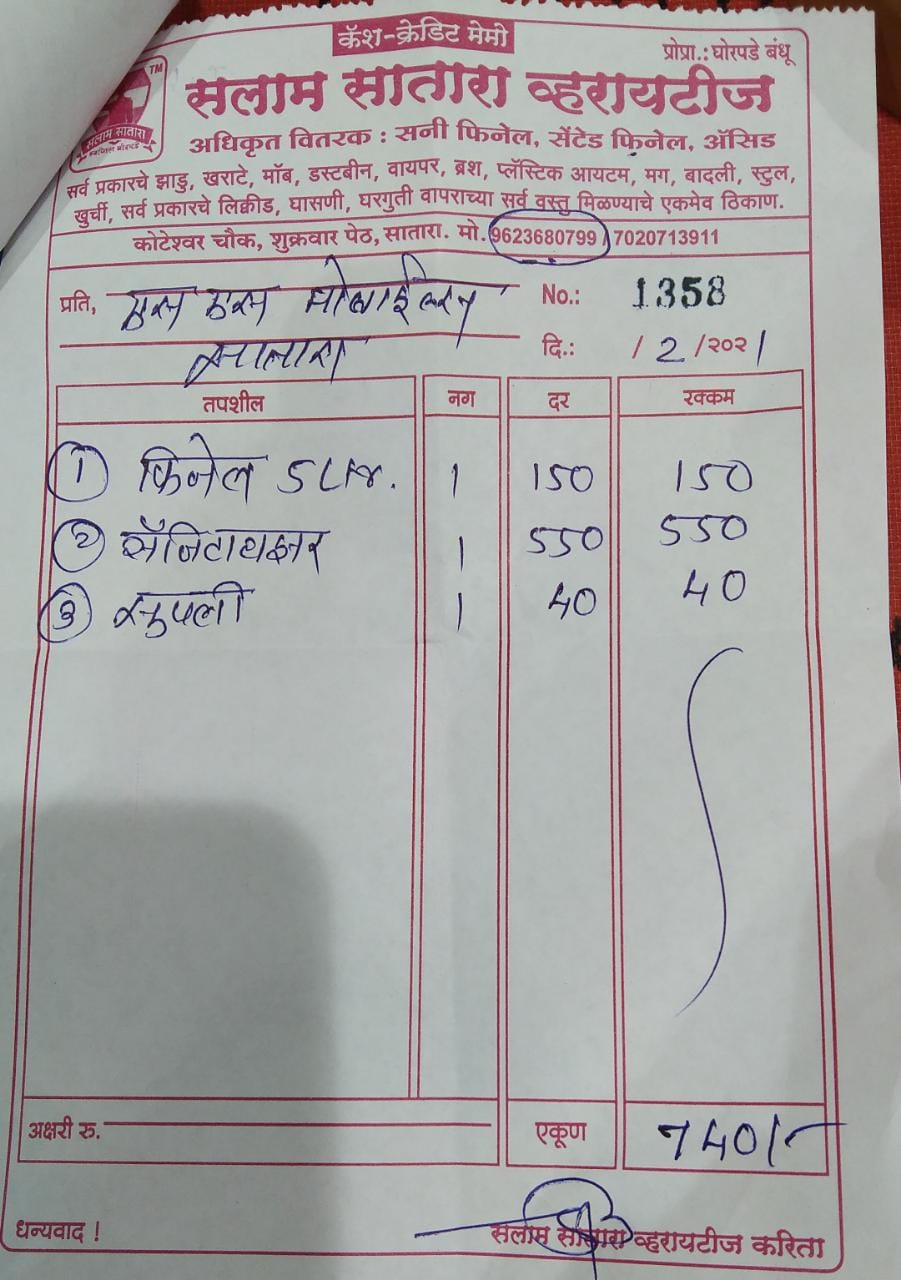 कॅश-क्रेडिट मेमो
प्रोप्रा.: घोरपडे बंधू
TM
सलाम सातारा
सलाम सातारा व्हरायटीज
अधिकृत वितरक : सनी फिनेल, सेंटेड फिनेल, ॲसिड
सर्व प्रकारचे झाडु, खराटे, मॉब, डस्टबीन, वायपर, ब्रश, प्लॅस्टिक आयटम, मग, बादली, स्टुल,
खुर्ची, सर्व प्रकारचे लिक्वीड, घासणी, घरगुती वापराच्या सर्व वस्तु मिळण्याचे एकमेव ठिकाण.
कोटेश्वर चौक, शुक्रवार पेठ, सातारा. मो. 9623680799 / 7020713911
प्रति, एस एस मोबाईल्स No.: 1358
सातारा दि.: / 2 / २०२1
तपशील नग दर रक्कम
1 फिनेल 5 Ltr. 1 150 150
२ सॅनिटायझर 1 550 550
३ सुपली 1 40 40
अक्षरी रु. एकूण 740/-
धन्यवाद ! सलाम सातारा व्हरायटीज करिता